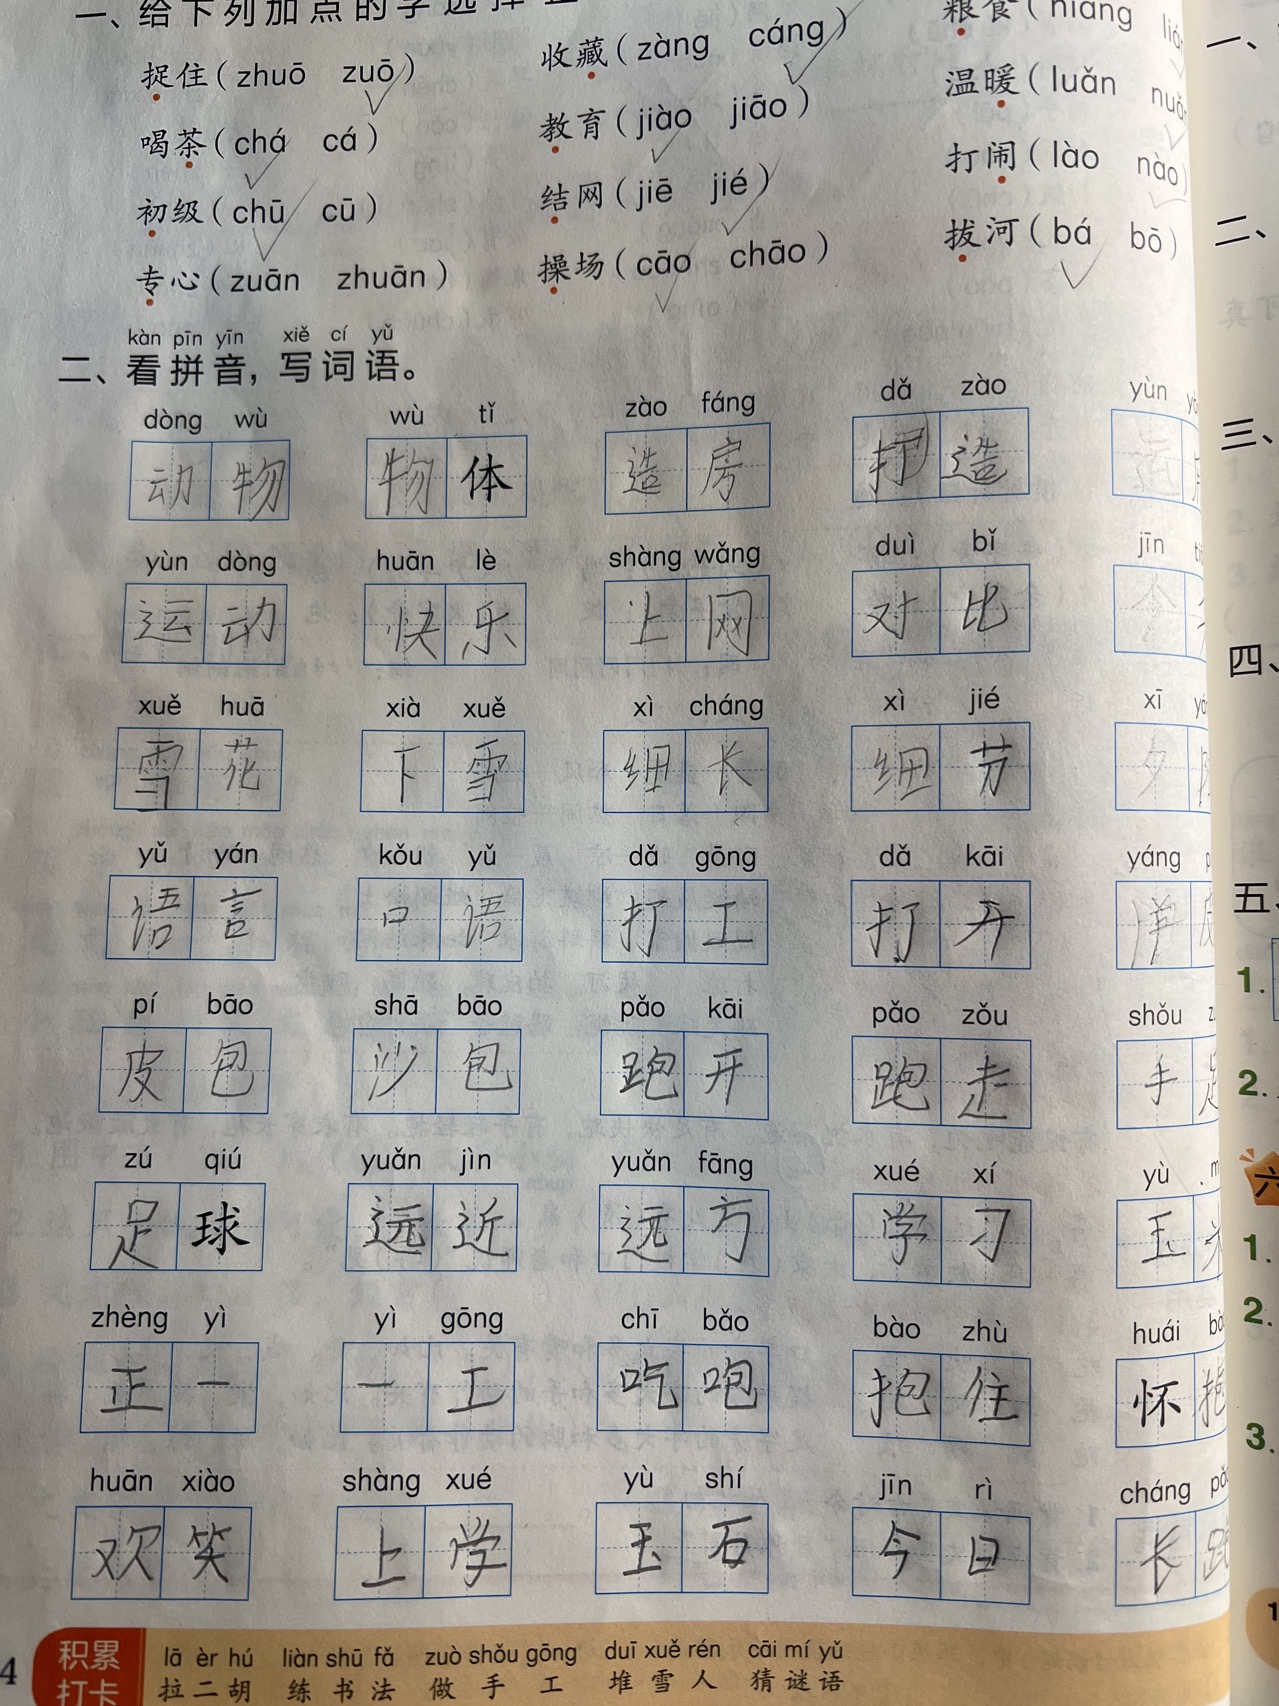 一、给下列加点的字选择正
捉住(zhuō zuō) 收藏(zàng cáng) 粮食(niáng
喝茶(chá cá) 教育(jiào jiāo) 温暖(luǎn nuǎn
初级(chū cū) 结网(jiē jié) 打闹(lào nào)
专心(zuān zhuān) 操场(cāo chāo) 拔河(bá bō)
kàn pīn yīn xiě cí yǔ
二、看拼音,写词语。
dòng wù wù tǐ zào fáng dǎ zào yùn
动物 物体 造房 打造 运
yùn dòng huān lè shàng wǎng duì bǐ jīn
运动 快乐 上网 对比 今
xuě huā xià xuě xì cháng xì jié xī
雪花 下雪 细长 细节 夕
yǔ yán kǒu yǔ dǎ gōng dǎ kāi yáng
语言 口语 打工 打开 洋
pí bāo shā bāo pǎo kāi pǎo zǒu shǒu
皮包 沙包 跑开 跑走 手
zú qiú yuǎn jìn yuǎn fāng xué xí yù
足球 远近 远方 学习 玉
zhèng yì yì gōng chī bǎo bào zhù huái
正一 一工 吃咆 抱住 怀抱
huān xiào shàng xué yù shí jīn rì cháng pǎo
欢笑 上学 玉石 今日 长跑
4 积累打卡
lā èr hú liàn shū fǎ zuò shǒu gōng duī xuě rén cāi mí yǔ
拉二胡 练书法 做手工 堆雪人 猜谜语
一、
二、
三、
四、
五、
1.
2.
六
1.
2.
3.